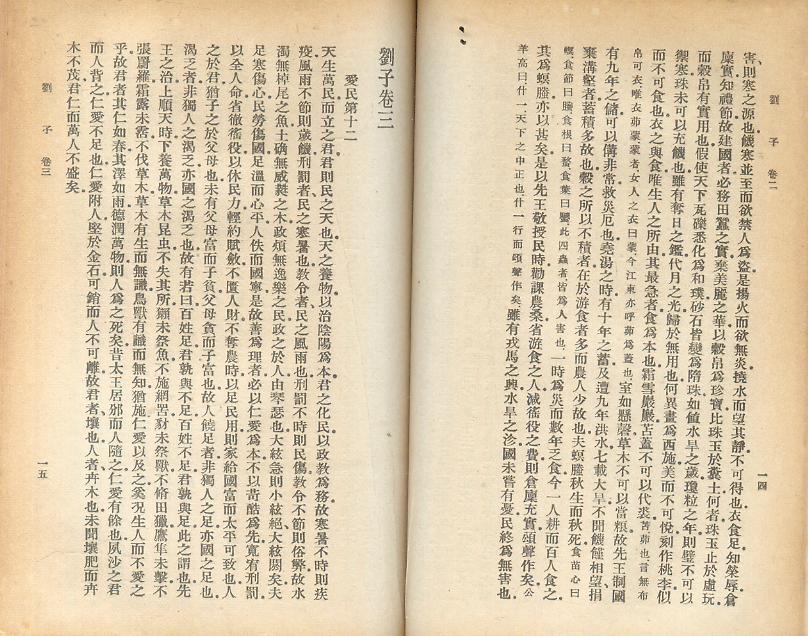 劉子 卷二
一四
害則寒之源也饑寒並至而欲禁人為盜是揚火而欲無炎撓水而望其靜不可得也衣食足知榮辱倉
廩實知禮節故建國者必務田蠶之實棄美麗之華以穀帛為珍寶比珠玉於糞土何者珠玉止於虛玩
而穀帛有實用也假使天下瓦礫悉化為和璞砂石皆變為隋珠如值水旱之歲瓊粒之年則璧不可以
禦寒珠未可以充饑也雖有奪日之鑑代月之光歸於無用也何異畫為西施美而不可悅刻作桃李似
而不可食也衣之與食唯生人之所由其最急者食為本也霜雪巖巖苫蓋不可以代裘苫茆也言無布
帛可衣唯衣茆蒙蒙者女人之衣曰蒙今江東亦呼茆為蓋也室如懸磬草木不可以當糧故先王制國
有九年之儲可以備非常救災厄也堯湯之時有十年之蓄及遭九年洪水七載大旱不聞饑饉相望捐
棄溝壑者蓄積多故也穀之所以不積者在於游食者多而農人少故也夫螟螣秋生而秋死食苗心曰
螟食節曰螣食根曰蝥食葉曰蠈此四蟲者皆為人害也一時為災而數年乏食今一人耕而百人食之
其為螟螣亦以甚矣是以先王敬授民時勸課農桑省游食之人減徭役之費則倉廩充實頌聲作矣公
羊高曰什一天下之中正也什一行而頌聲作矣雖有戎馬之興水旱之沴國未嘗有憂民終為無害也
劉子卷三
愛民第十二
天生萬民而立之君君則民之天也天之養物以治陰陽為本君之化民以政教為務故寒暑不時則疾
疫風雨不節則歲饑刑罰者民之寒暑也教令者民之風雨也刑罰不時則民傷教令不節則俗獘故水
濁無掉尾之魚土确無葳蕤之木政煩無逸樂之民政之於人由琴瑟也大絃急則小絃絕大絃闋矣夫
足寒傷心民勞傷國足溫而心平人佚而國寧是故善為理者必以仁愛為本不以苛酷為先寬宥刑罰
以全人命省徹徭役以休民力輕約賦斂不匱人財不奪農時以足民用則家給國富而太平可致也人
之於君猶子之於父母也未有父母富而子貧父母貧而子富也故人饒足者非獨人之足亦國之足也
渴乏者非獨人之渴乏亦國之渴乏也故有若曰百姓足君孰與不足百姓不足君孰與足此之謂也先
王之治上順天時下養萬物草木昆虫不失其所獺未祭魚不施網罟豺未祭獸不脩田獵鷹隼未擊不
張罻羅霜露未霑不伐草木草木有生而無識鳥獸有識而無知猶施仁愛以及之奚況生人而不愛之
乎故君者其仁如春其澤如雨德潤萬物則人為之死矣昔太王居邠而人隨之仁愛有餘也夙沙之君
而人背之仁愛不足也仁愛附人堅於金石可銷而人不可離故君者壤也人者卉木也未聞壤肥而卉
木不茂君仁而萬人不盛矣
劉子 卷三
一五